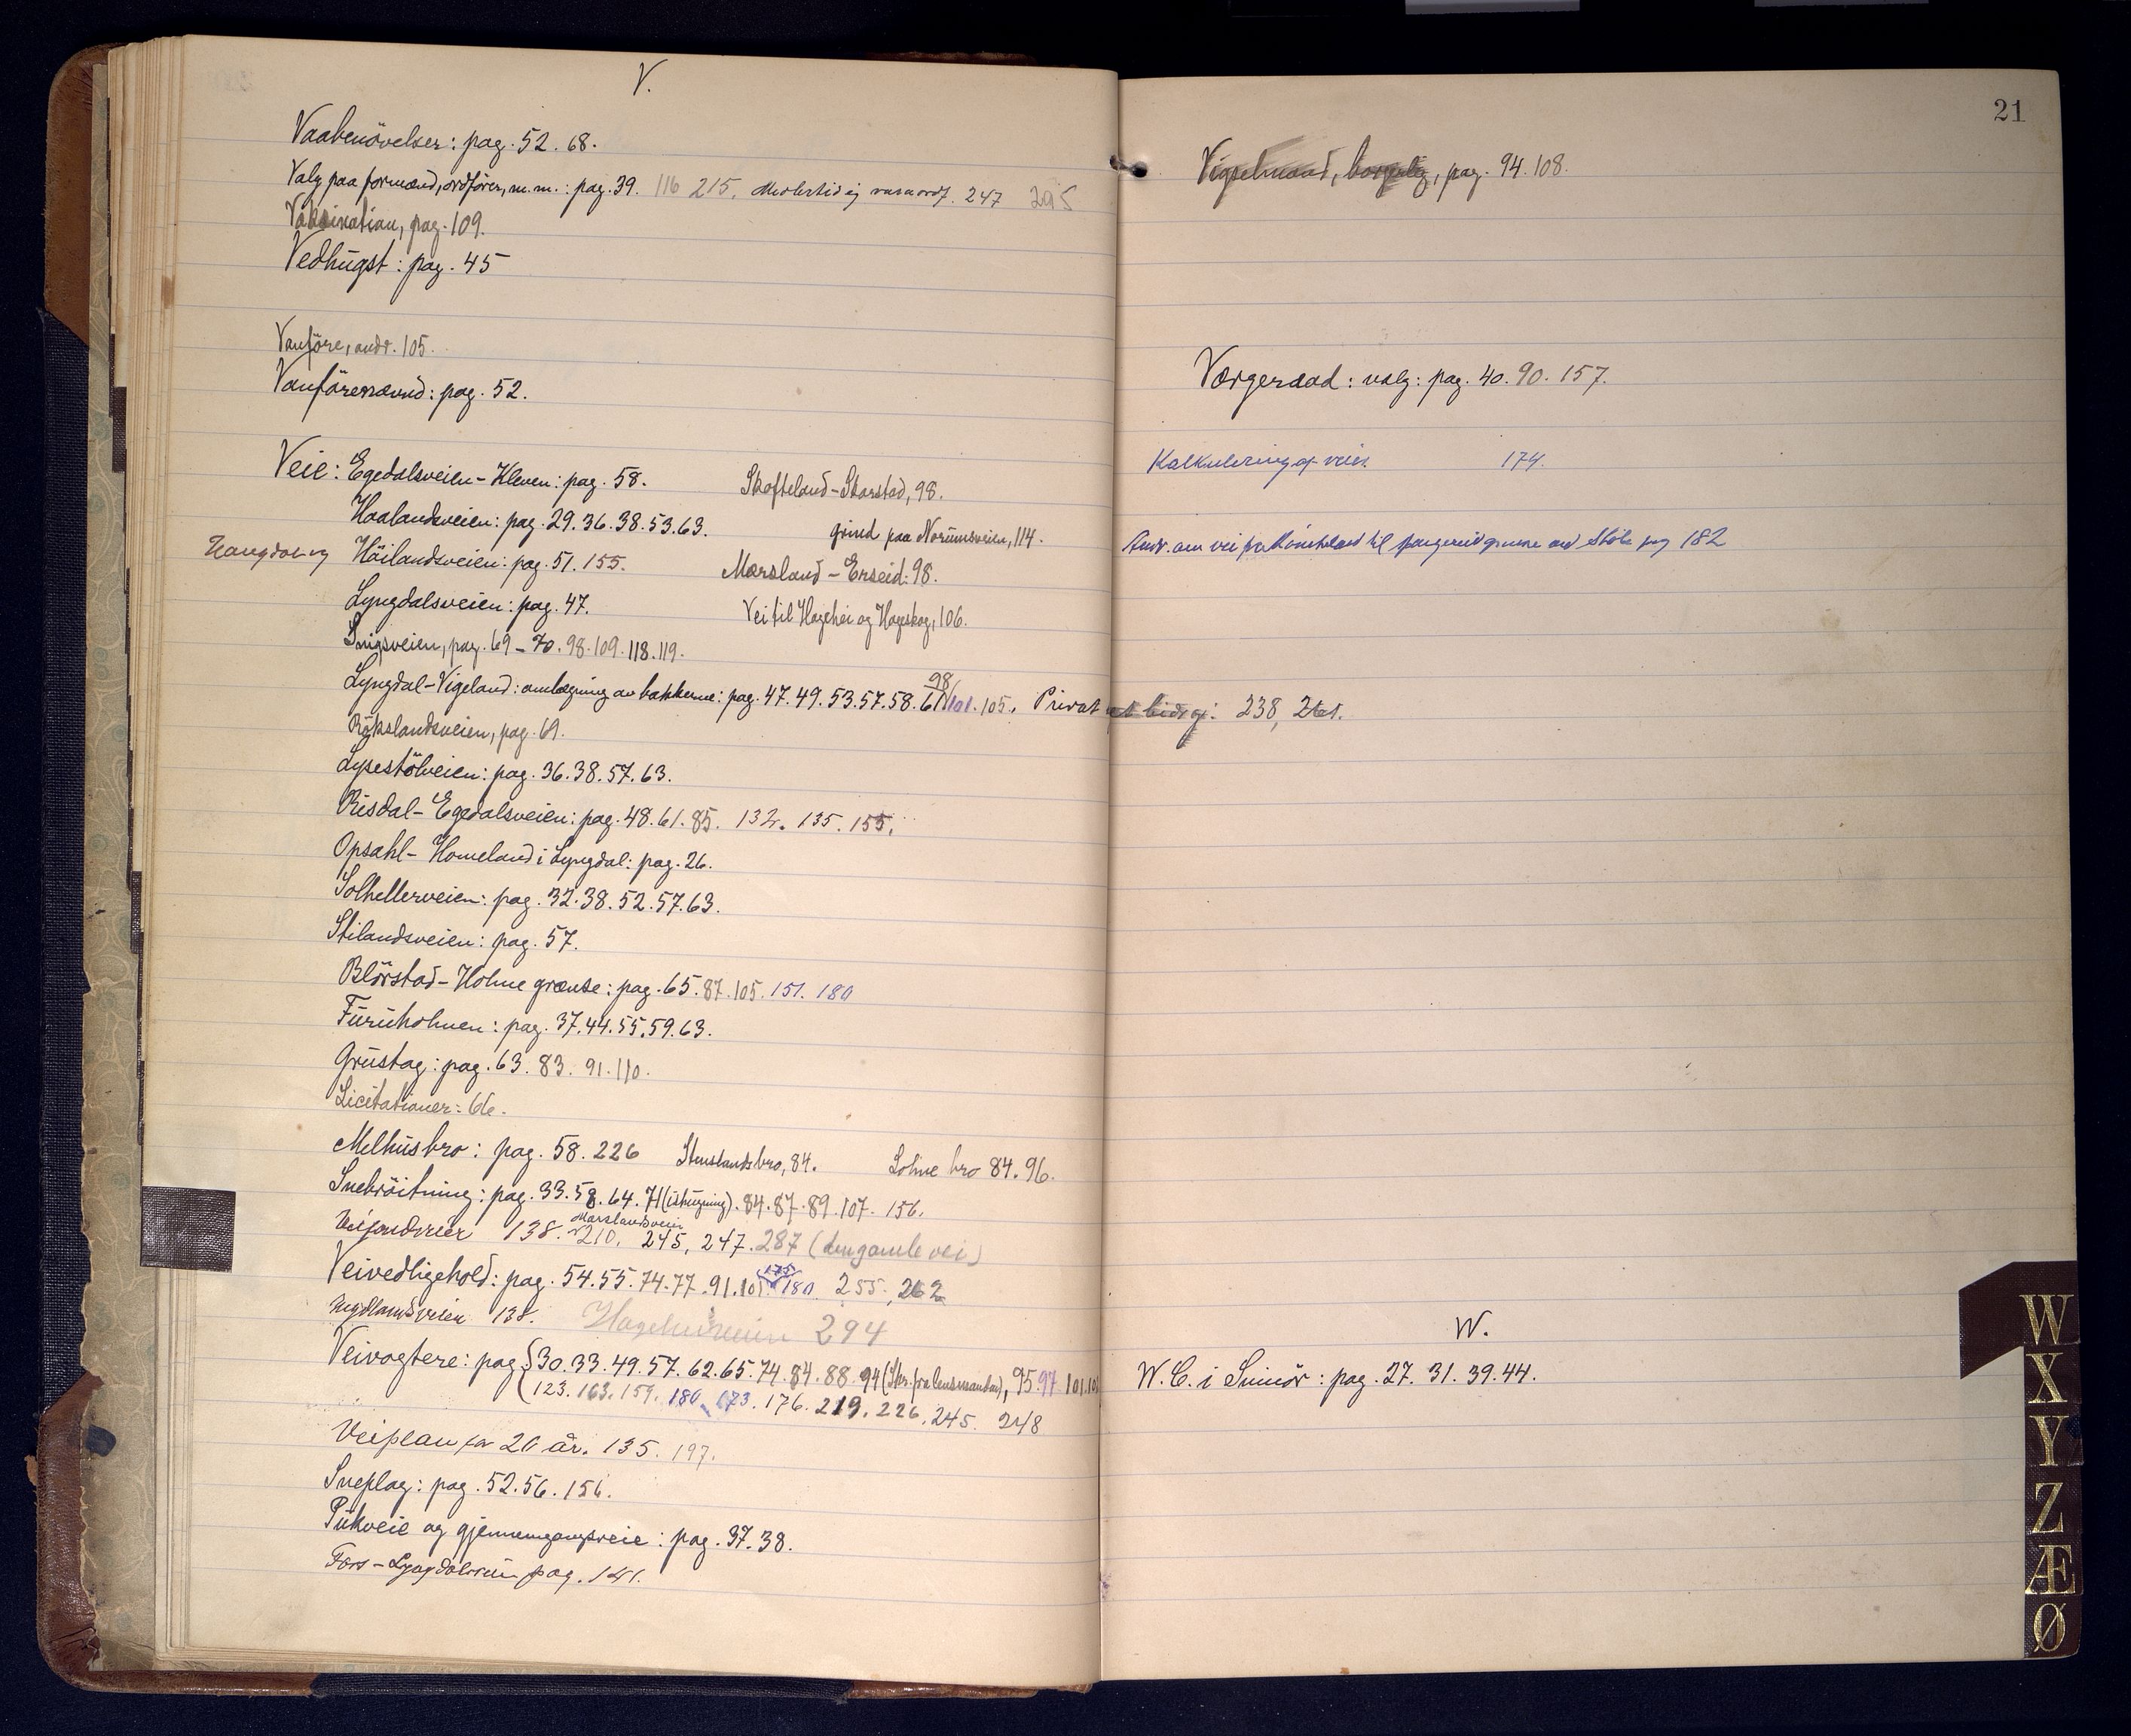 V.
Vaabenövelser: pag. 52. 68.
Valg paa formænd, ordfører, m. m.: pag. 39. 116 215. Midlertidig varaordf. 247 295
Vaksination, pag. 109.
Vedhügst: pag. 45
Vanföre, andr. 105.
Vanförenævnd: pag. 52.
Veie: Egedalsveien - Kleven: pag. 58.
Skofteland - Skarstad, 98.
Haalandsveien: pag. 29. 36. 38. 53. 63.
grind paa Noriimsveien, 114.
Haugdal og Höilandsveien: pag. 51. 155.
Marsland - Erseid: 98.
Lyngdalsveien: pag. 47.
Vei til Hagehei og Hageskog, 106.
Snigsveien, pag. 69 - 70. 98. 109. 118. 119.
Lyngdal - Vigeland: omlægning av bakkerne: pag. 47. 49. 53. 57. 58. 61. 98 101. 105. Privat 238, 261.
Rökslandsveien, pag. 69.
Lysestölveien: pag. 36. 38. 57. 63.
Risdal - Egedalsveien: pag. 48. 61. 85. 132. 135. 155.
Opsahl - Homeland i Lyngdal: pag. 26.
Solhellerveien: pag. 32. 38. 52. 57. 63.
Stilandsveien: pag. 57.
Blörstad - Holme grænse: pag. 65. 87. 105. 151. 180
Füruholmen: pag. 37. 44. 55. 59. 63.
Grüstag: pag. 63. 83. 91. 110.
Licitationer: 66.
Melhüsbro: pag. 58. 226 Stenslandsbro, 84. Lohne bro 84. 96.
Snebröitning: pag. 33. 58. 64. 71 (ishügning). 84. 87. 89. 107. 156.
138. Marslandsvei 210. 245, 247. 287 (den gamle vei)
Veivedligehold: pag. 54. 55. 74. 77. 91. 101. 175 180. 255, 262
138. 294
Veivogtere: pag. 30. 33. 49. 57. 62. 65. 74. 84. 88. 94 (Skr. fra lensmanden), 95. 97. 101.
123. 163. 159. 180. 173. 176. 219. 226. 245. 248
Veiplan for 20 år. 135. 197.
Sneplog: pag. 52. 56. 156.
Pükveie og gjennemgangsveie: pag. 37. 38.
Foss - Lyngdalsveien pag. 141.
21
Vigselmand, borgerlig, pag. 94. 108.
Værgeraad: valg: pag. 40. 90. 157.
Kalkulering af veier. 174.
Andr. om vei fra til grense ved Støle pag 182
W.
W. C. i Snimör: pag. 27. 31. 39. 44.
W
X
Y
Z
Æ
Ø